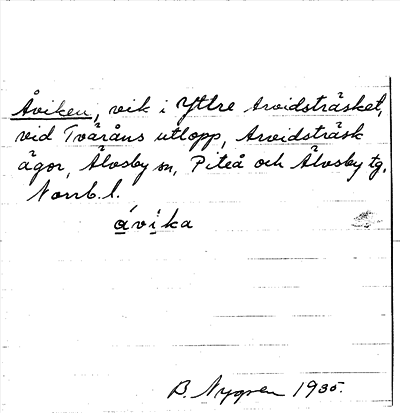 Åviken, vik i Yttre Arvidsträsket,
vid Tvåråns utlopp, Arvidsträsk
ägor, Älvsby sn, Piteå och Älvsby tg,
Norrb. l.
åvika
B. Nygren 1935.